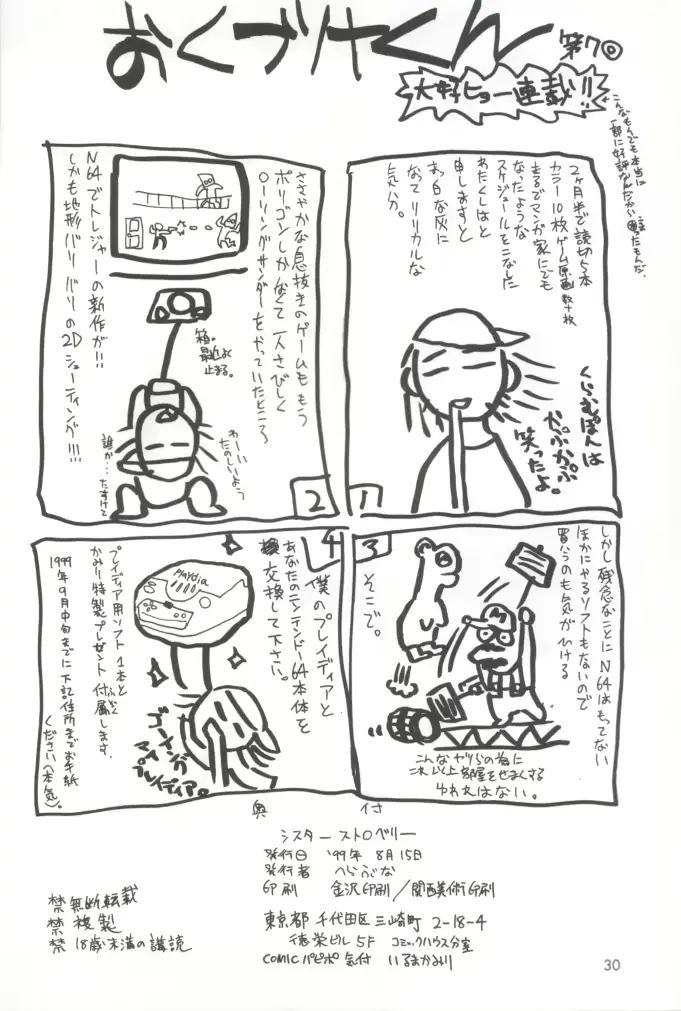 おくづけくん
第7回
大好ヒョー連載!!
こんなもんでも本当に
一部に好評なんだから困ったもんだ。
2ヶ月半で読切5本
カラー10枚ゲーム原画数十枚
まるでマンガ家にでも
なったような
スケジュールをこなした
わたくしはと
申しますと
まっ白な灰に
なってリリカルな
気分。
くらむぽんは
かぷかぷ
笑ったよ。
1
ささやかな息抜きのゲームももう
ポリゴンしかなくて一人さびしく
ローリングサンダーをやっていたところ
N64でトレジャーの新作が!!
しかも地形バリバリの2Dシューティング!!!
箱。
最近よく
止まる。
わーい
たのしいよう
誰が…たすけて
2
しかし残念なことにN64はもってない
ほかにやるソフトもないので
買うのも気がひける
そこで。
こんなヤツらの為に
これ以上部屋をせまくする
ゆれはない。
3
4
僕のプレイディアと
あなたのニンテンドー64本体を
交換して下さい。
Playdia
プレイディア用ソフト1本と
かみり特製プレゼント付属します。
1999年9月中旬までに下記住所までお手紙
ください(本気)。
ゴーイング
マイ
プレイディア。
奥付
シスターストロベリー
発行日 '99年 8月15日
発行者 へらぶな
印刷 金沢印刷/関西美術印刷
東京都千代田区三崎町 2-18-4
徳栄ビル5F コミックハウス分室
COMICパピポ気付 いるまかみり
禁無断転載
禁複製
禁18歳未満の講読
30